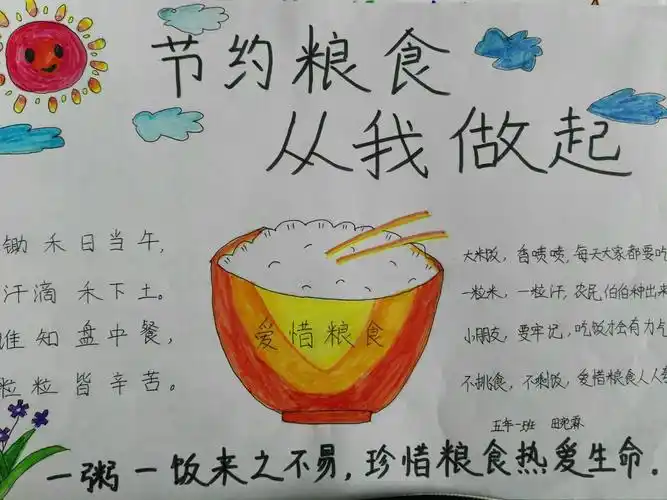 节约粮食
从我做起
锄禾日当午，
汗滴禾下土。
谁知盘中餐，
粒粒皆辛苦。
爱惜粮食
大米饭，香喷喷，每天大家都要吃
一粒米，一粒汗，农民伯伯种出来
小朋友，要牢记，吃饭才会有力气
不挑食，不剩饭，爱惜粮食人人
五年一班
一粥一饭来之不易，珍惜粮食热爱生命。